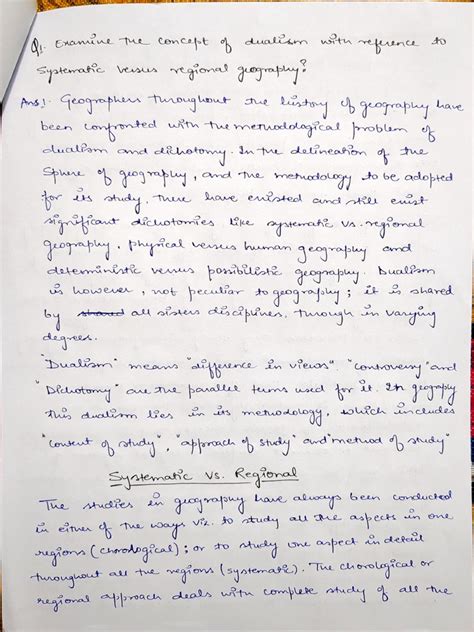 Q1. Examine the concept of dualism with reference to
systematic versus regional geography?
Ans:. Geographers throughout the history of geography have
been confronted with the methodological problem of
dualism and dichotomy. In the delineation of the
sphere of geography, and the methodology to be adopted
for its study, there have existed and still exist
significant dichotomies like systematic vs. regional
geography, physical versus human geography and
deterministic versus possibilistic geography. Dualism
is however, not peculiar to geography; it is shared
by shared all sisters disciplines, through in varying
degrees.
"Dualism" means "difference in views". "controversy" and
"Dichotomy" are the parallel terms used for it. In geography
this dualism lies in its methodology, which includes
"content of study", "approach of study" and "method of study"
Systematic Vs. Regional
The studies in geography have always been conducted
in either of the ways viz. to study all the aspects in one
regions (chorological); or to study one aspect in detail
throughout all the regions (systematic). The chorological or
regional approach deals with complete study of all the